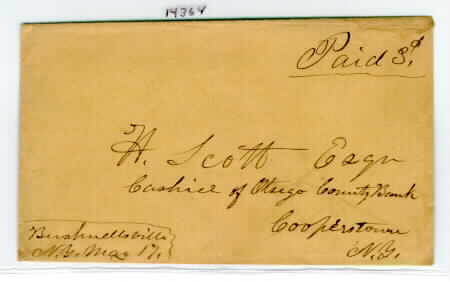 14364
Paid 3.
H. Scott Esqr
Cashier of Otsego County Bank
Cooperstown
N.Y.
Bushnellsville
N.Y. Mar 17.